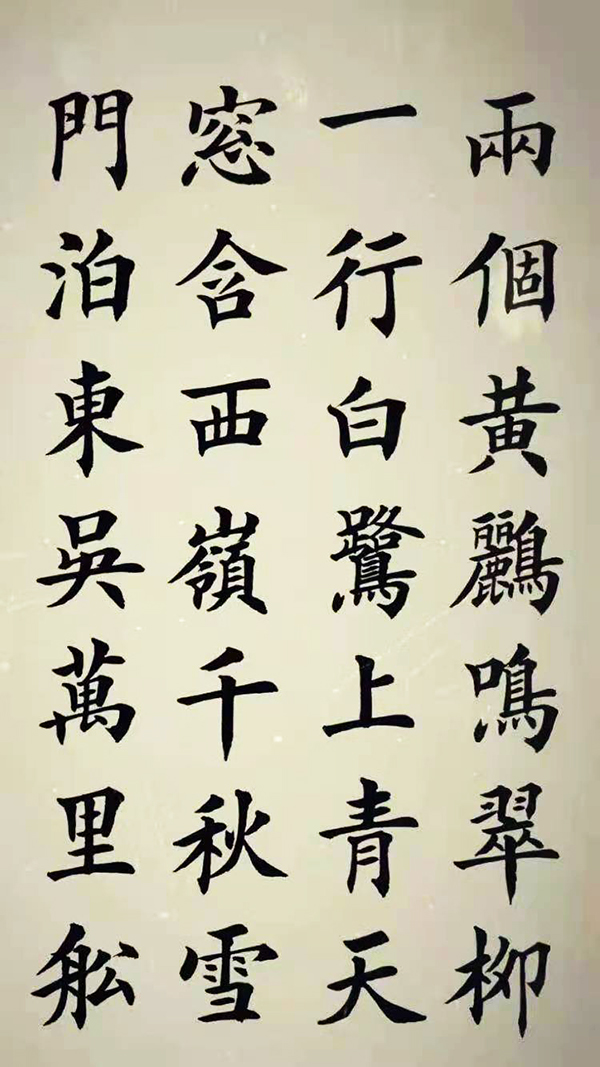 兩個黃鸝鳴翠柳
一行白鷺上青天
窓含西嶺千秋雪
門泊東吳萬里舩